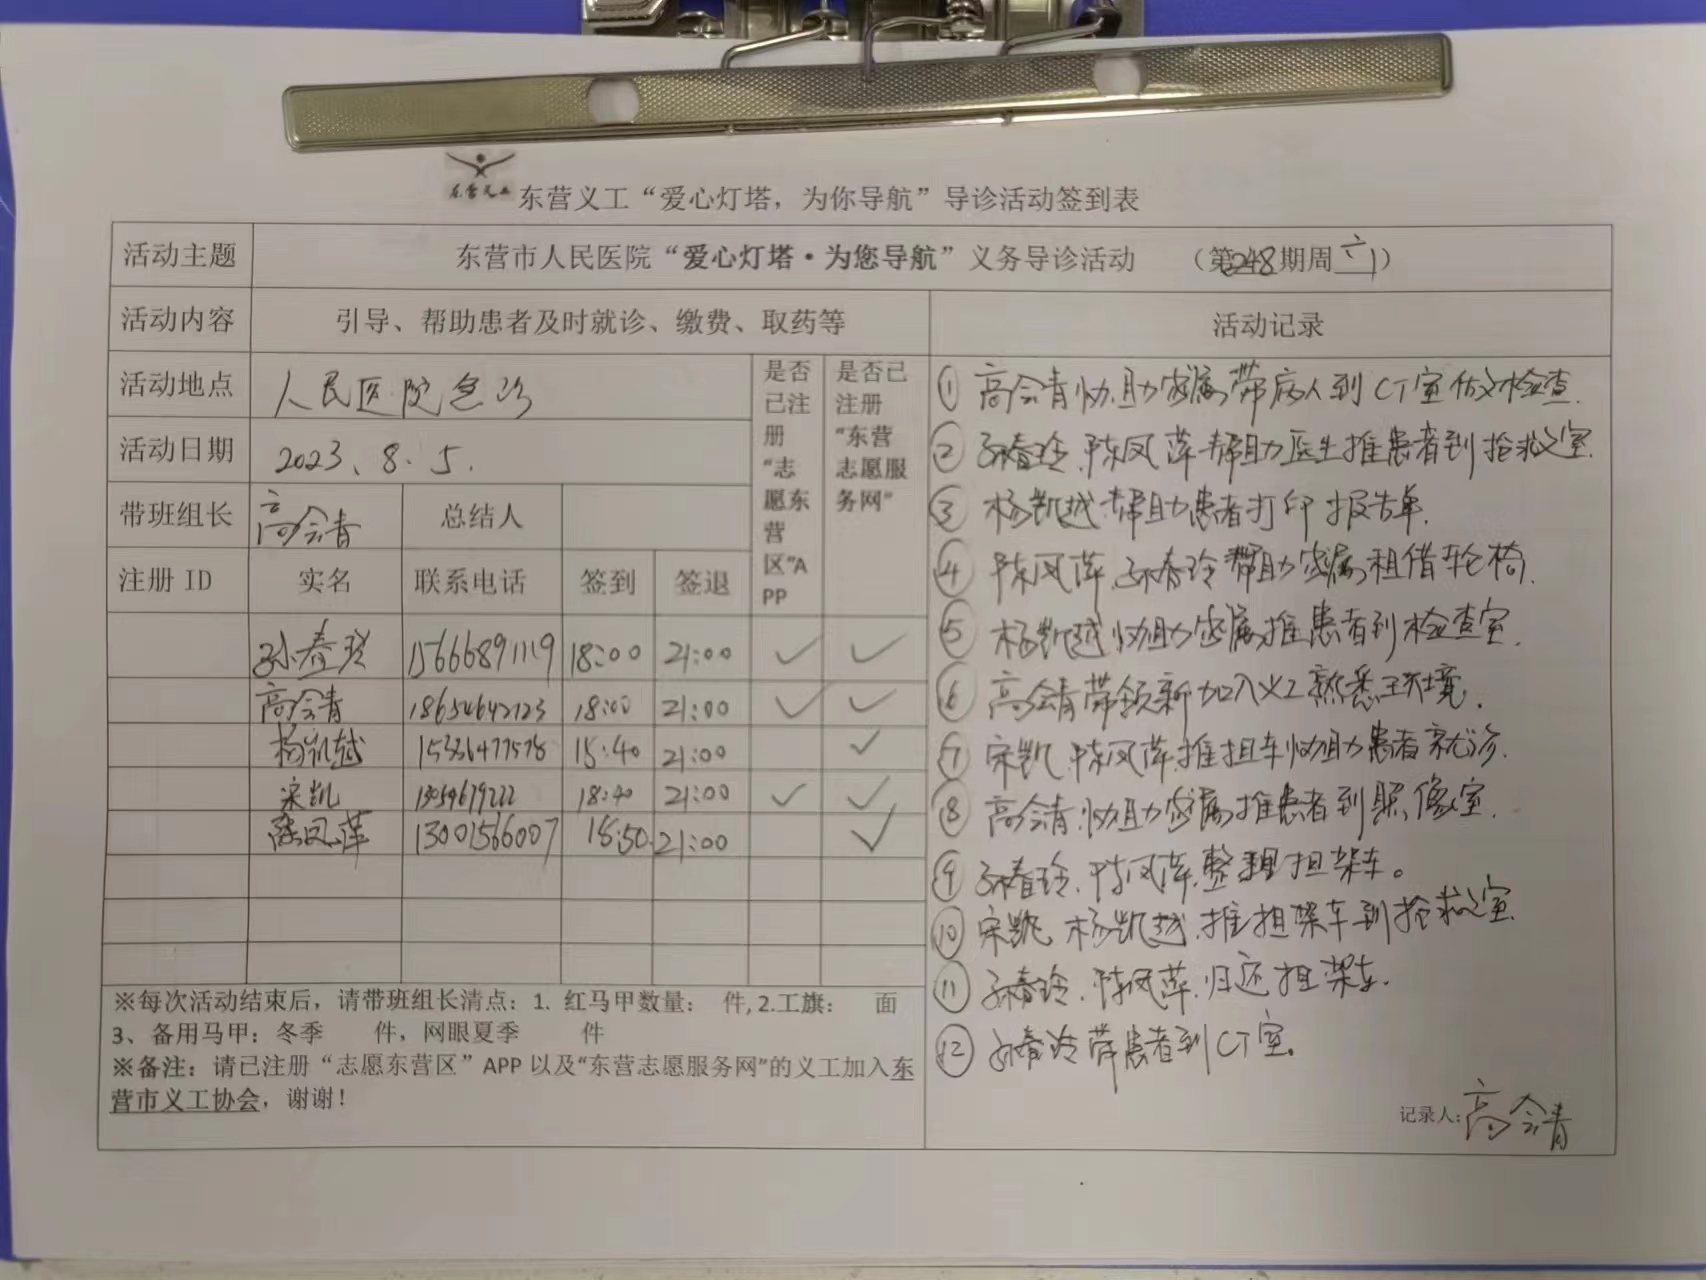 东营义工
东营义工“爱心灯塔，为你导航”导诊活动签到表
活动主题
东营市人民医院“爱心灯塔·为您导航”义务导诊活动 （第248期周六）
活动内容
引导、帮助患者及时就诊、缴费、取药等
活动记录
活动地点 人民医院急诊
活动日期 2023.8.5.
带班组长 高会青 总结人
是否已注册“志愿东营区”APP
是否已注册“东营志愿服务网”
注册 ID 实名 联系电话 签到 签退
孙春玲 15666891119 18:00 21:00 ✓ ✓
高会青 18654642123 18:00 21:00 ✓ ✓
杨凯越 15336477578 15:40 21:00 ✓
宋凯 18:40 21:00 ✓ ✓
陈凤萍 13001566007 18:50 21:00 ✓
※每次活动结束后，请带班组长清点：1. 红马甲数量： 件, 2.工旗： 面
3、备用马甲：冬季 件，网眼夏季 件
※备注：请已注册“志愿东营区”APP 以及“东营志愿服务网”的义工加入东
营市义工协会，谢谢！
① 高会青协助家属带病人到CT室做检查.
② 孙春玲.陈凤萍帮助医生推患者到抢救室.
③ 杨凯越帮助患者打印报告单.
④ 陈凤萍.孙春玲帮助家属租借轮椅.
⑤ 杨凯越协助家属推患者到检查室.
⑥ 高会青带领新加入义工熟悉环境.
⑦ 宋凯.陈凤萍推担车协助患者就诊.
⑧ 高会青协助家属推患者到照像室.
⑨ 孙春玲.陈凤萍整理担架车。
⑩ 宋凯.杨凯越.推担架车到抢救室.
⑪ 孙春玲.陈凤萍.归还担架车.
⑫ 孙春玲带患者到CT室。
记录人：高会青